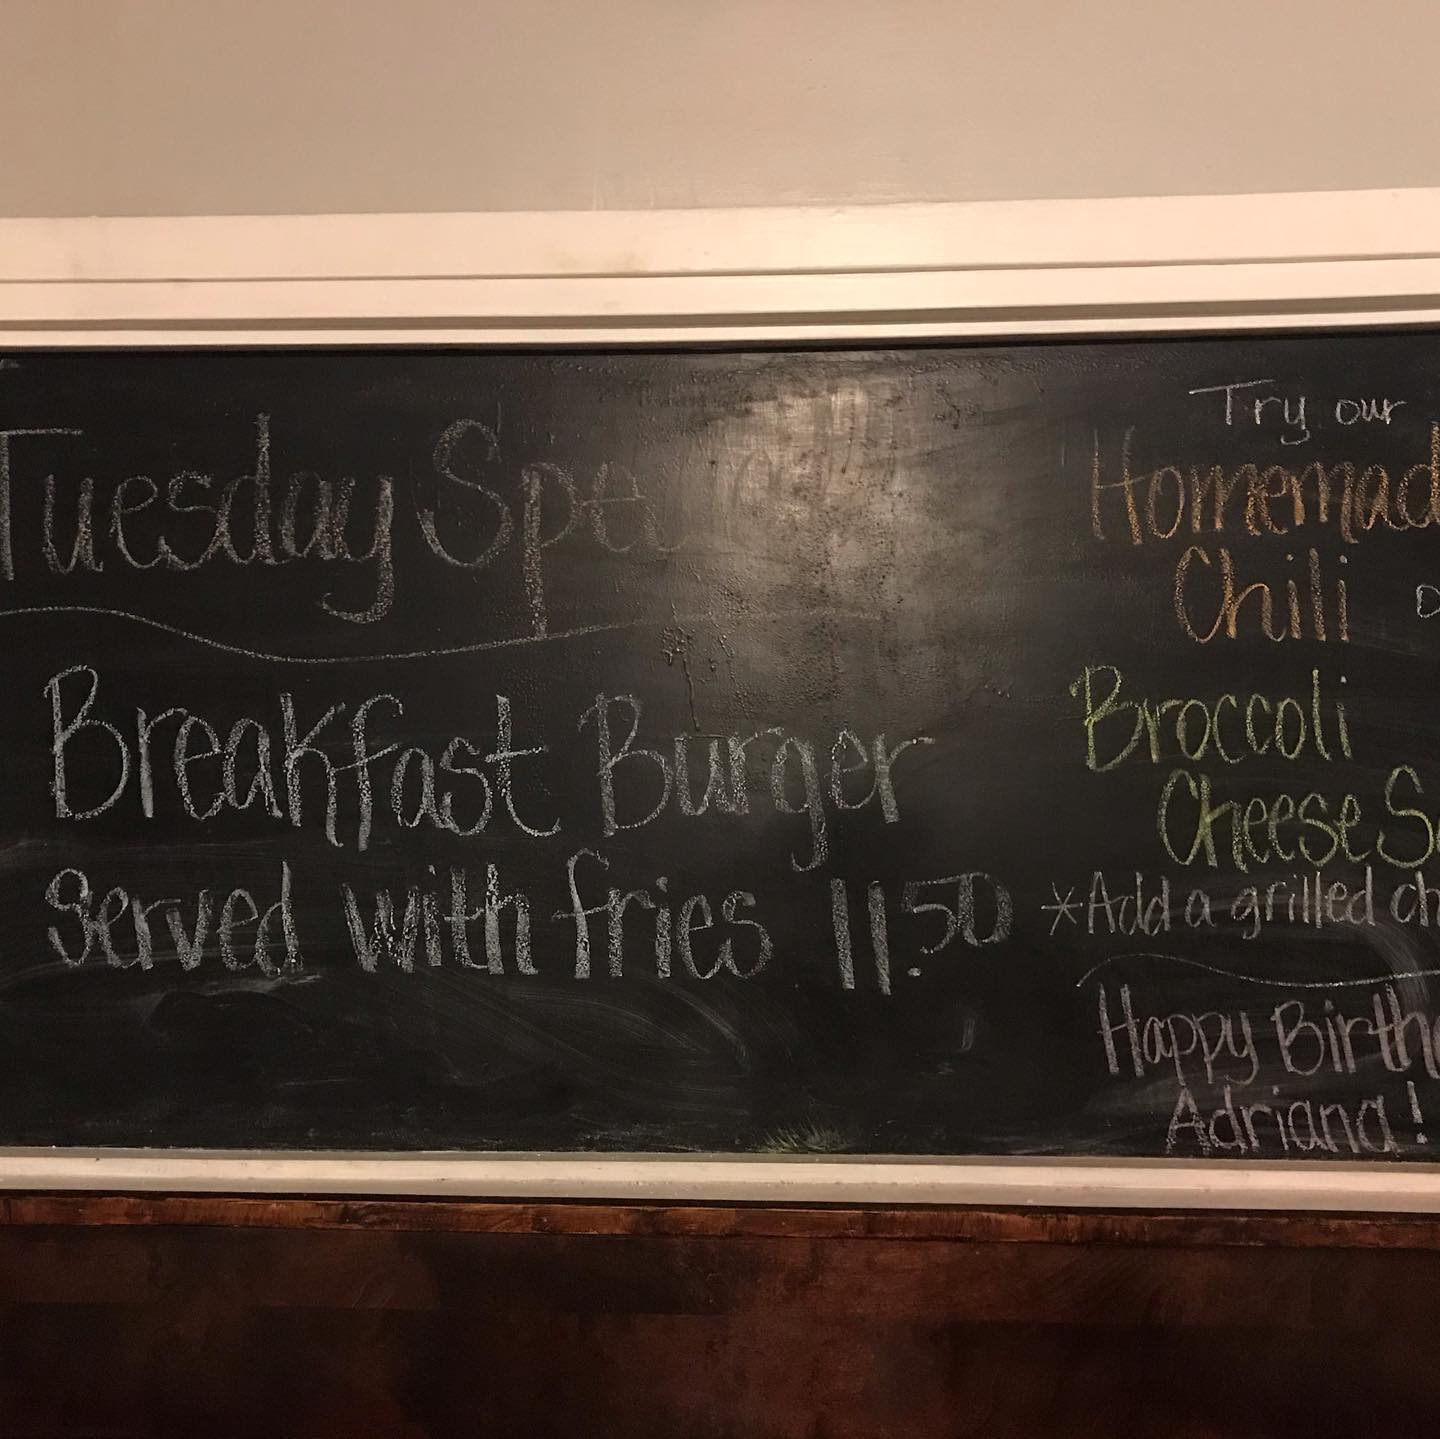 Tuesday Spe
Breakfast Burger
served with fries 11.50
Try our
Homemad
Chili
Broccoli
Cheese S
*Add a grilled ch
Happy Birth
Adriana!